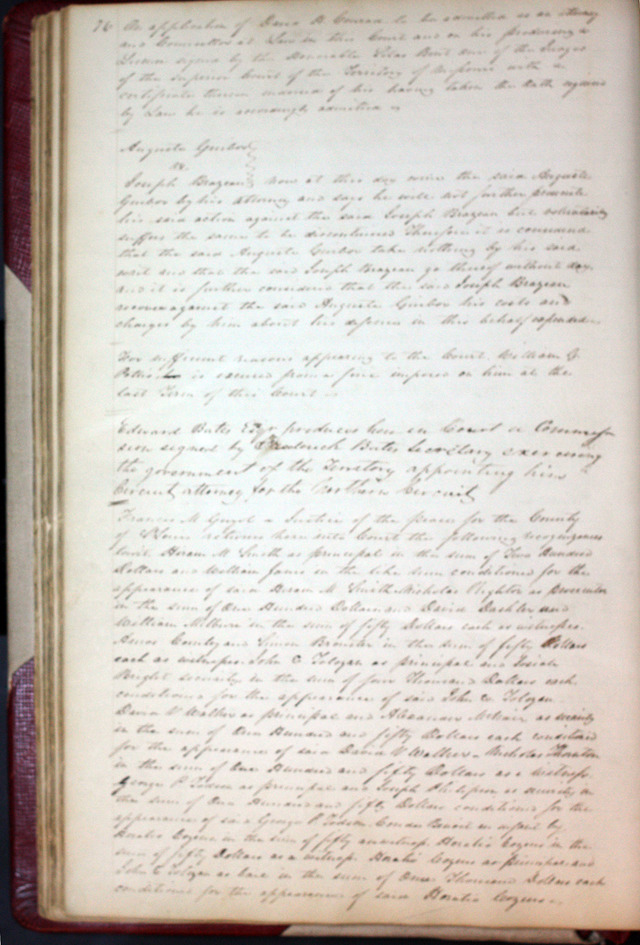 76 On application of David B. Conrad to be admitted as an attorney
and Counsellor at Law in this Court and on his producing a
License signed by the Honorable Silas Bent one of the Judges
of the Superior Court of the Territory of Missouri with a
certificate thereon endorsed of his having taken the Oath required
by Law he is accordingly admitted
Auguste Guibor
vs.
Joseph Brazeau now at this day comes the said Auguste
Guibor by his attorney and says he will not further prosecute
his said action against the said Joseph Brazeau but voluntarily
suffers the same to be discontinued Therefore it is considered
that the said Auguste Guibor take nothing by his said
writ and that the said Joseph Brazeau go thereof without day,
and it is further considered that the said Joseph Brazeau
recover against the said Auguste Guibor his costs and
charges by him about his defence in this behalf expended
For sufficient reasons appearing to the Court William G.
Pettis is excused from a fine imposed on him at the
last Term of this Court
Edward Bates Esqr produces here in Court a Commis
sion signed by Frederick Bates Secretary exercising
the government of the Territory appointing him
Circuit attorney for the Northern Circuit
Francis M. Guyol a Justice of the peace for the County
of St Louis returns here into Court the following recognizances
towit. Hiram M. Smith as principal in the sum of Two Hundred
Dollars and William James in the like sum conditioned for the
appearance of said Hiram M. Smith, Nicholas as prosecutor
in the sum of One Hundred Dollars and David and
William in the sum of fifty Dollars each as witnesses.
Amos and Simon in the sum of fifty Dollars
each as witnesses. John C as principal and
Bright security in the sum of four Thousand Dollars each
conditioned for the appearance of said John C
David V Walker as principal and Alexander McNair as security
in the sum of One Hundred and fifty Dollars each conditioned
for the appearance of said David V Walker Nicholas
in the sum of One Hundred and fifty Dollars as a witness
George P. Todson as principal and Joseph Philipson as security in
the sum of One Hundred and fifty Dollars conditioned for the
appearance of said George P. Todson. by
Horatio Cozens in the sum of fifty as witness. Horatio Cozens in the
sum of fifty Dollars as a witness Horatio Cozens as principal and
John C as bail in the sum of One Thousand Dollars each
conditioned for the appearance of said Horatio Cozens